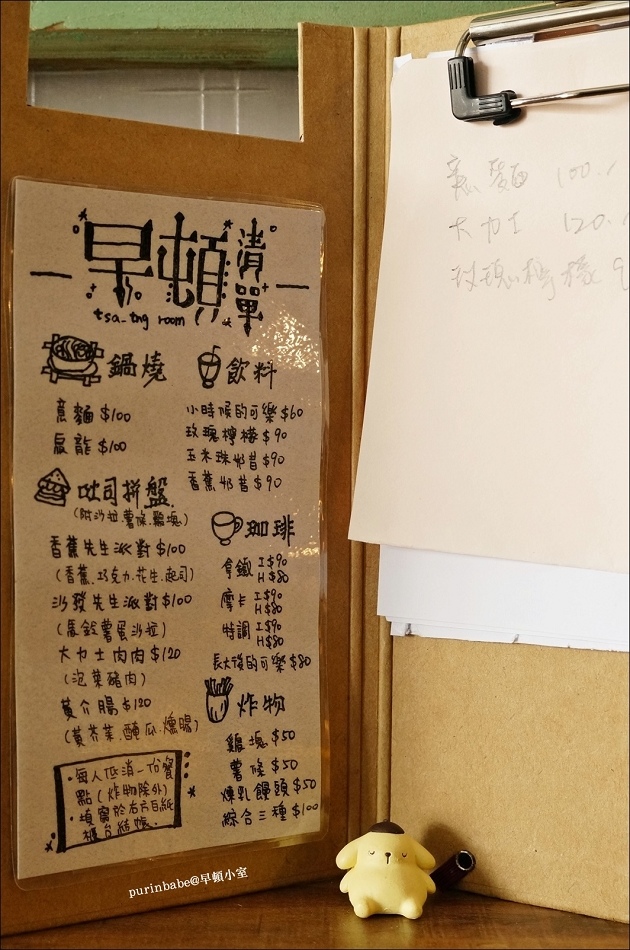 早頓清單
tsa_tng room
鍋燒
意麵 $100
烏龍 $100
吐司拼盤
(附沙拉.薯條.雞塊)
香蕉先生派對 $100
(香蕉.巧克力.花生.起司)
沙發先生派對 $100
(馬鈴薯蛋沙拉)
大力士肉肉 $120
(泡菜豬肉)
黃介腸 $120
(黃芥茉.醃瓜.燻腸)
・每人低消一份餐
點(炸物除外)
・填寫於右方白紙
櫃台結帳.
飲料
小時候的可樂 $60
玫瑰檸檬 $90
玉米珠奶昔 $90
香蕉奶昔 $90
咖啡
拿鐵 I $90
H $80
摩卡 I $90
H $80
特調 I $90
H $80
長大後的可樂 $80
炸物
雞塊 $50
薯條 $50
煉乳饅頭 $50
綜合三種 $100
意麵 100.
大力士 120.
玫瑰檸檬 9
purinbabe@早頓小室